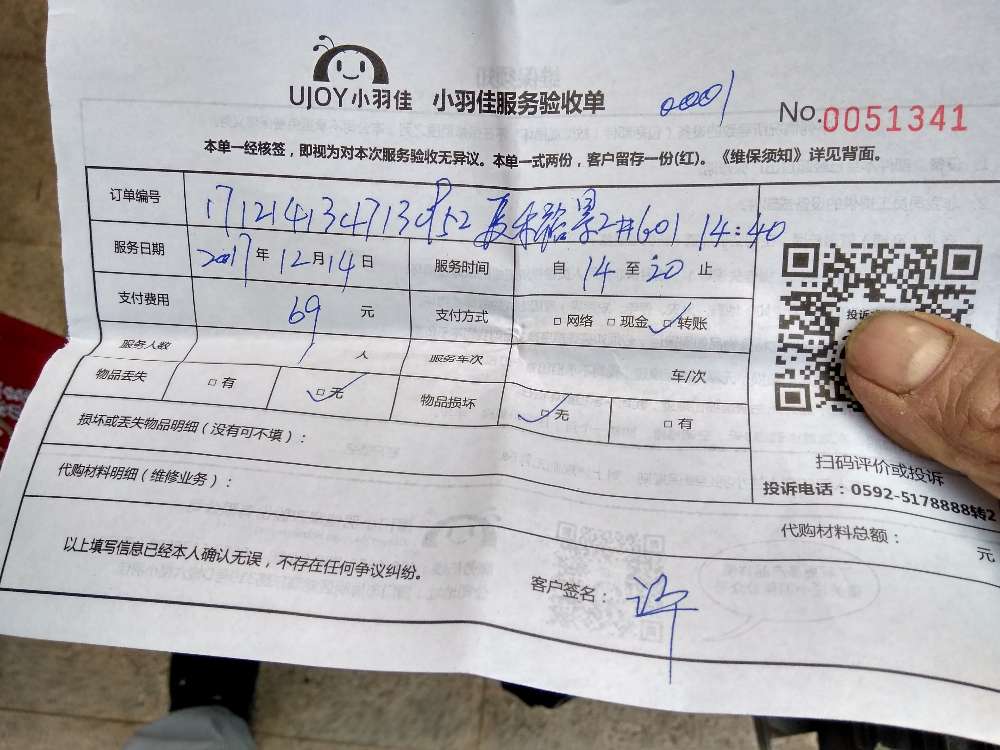 UJOY小羽佳 小羽佳服务验收单 0001 No.0051341
本单一经核签，即视为对本次服务验收无异议。本单一式两份，客户留存一份(红)。《维保须知》详见背面。
订单编号 14:40
服务日期 2017年12月14日 服务时间 自14至20止
支付费用 69元 支付方式 □网络 □现金 □转账
服务人数 1人 服务车次 车/次
物品丢失 □有 □无 物品损坏 □无 □有
损坏或丢失物品明细（没有可不填）：
代购材料明细（维修业务）：
扫码评价或投诉
投诉电话：0592-5178888转2
代购材料总额： 元
以上填写信息已经本人确认无误，不存在任何争议纠纷。
客户签名：许